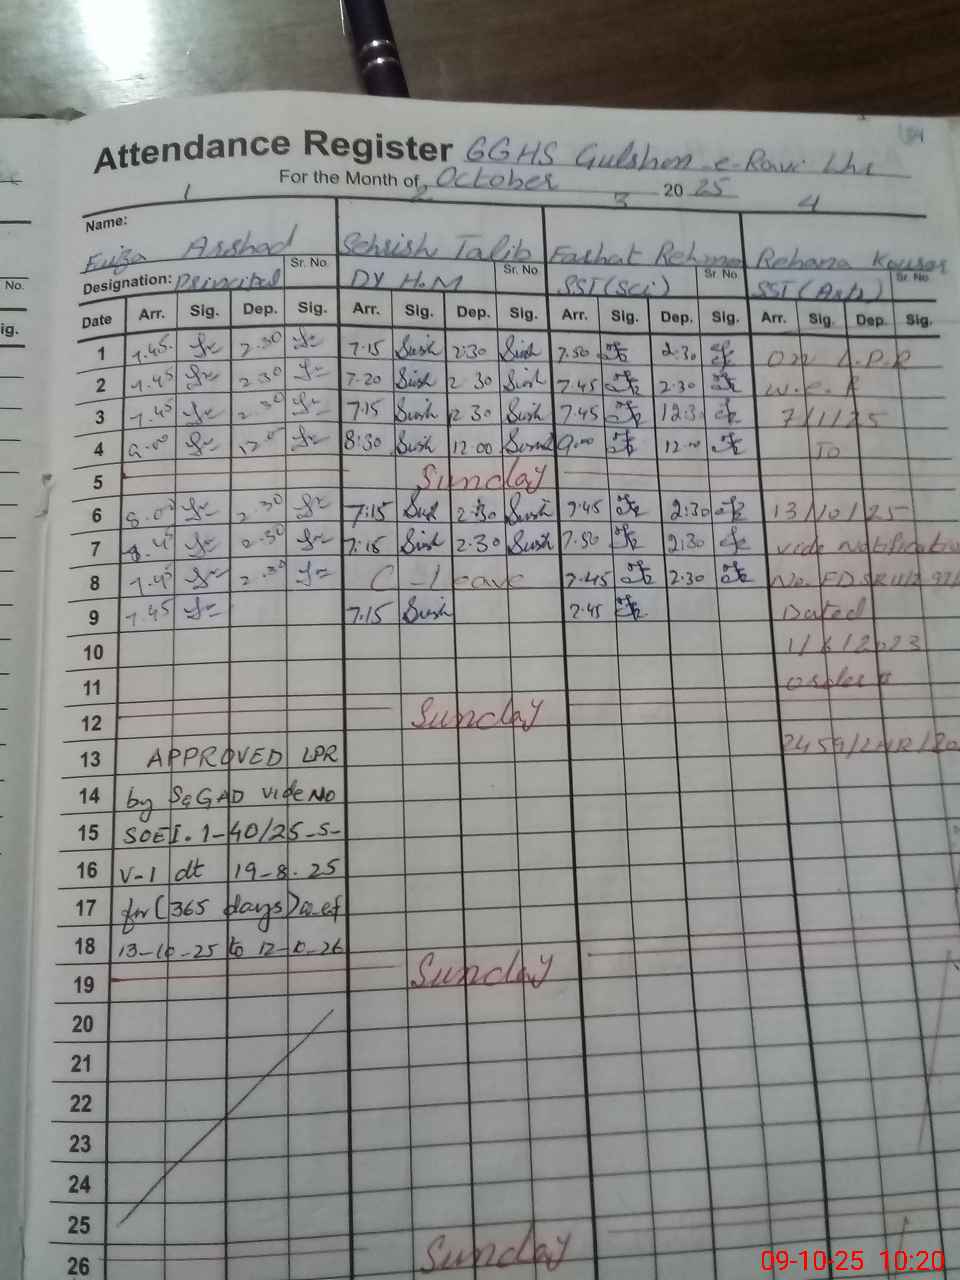 184
Attendance Register GGHS Gulshan-e-Ravi Lhr
For the Month of October 2025
1 2 3 4
Name:
Faiza Arshad Sehrish Talib Farhat Rehma Rehana Kousar
Sr. No. Sr. No. Sr. No. Sr. No.
Designation: Principal DY H.M SST(Sci) SST(Arts)
Date Arr. Sig. Dep. Sig. Arr. Sig. Dep. Sig. Arr. Sig. Dep. Sig. Arr. Sig. Dep. Sig.
1 7.45 2.30 7:15 2:30 7.50 2.30 On L.P.R
2 7.45 2.30 7.20 2.30 7.45 2.30 w.e.f
3 7.45 2.30 7.15 2 30 7.45 12.30 7/1/25
4 9.00 12.00 8:30 12.00 9.00 12.00 To
5 Sunday
6 8.00 2.30 7:15 2.30 7.45 2:30 13/10/25
7 2.30 7:15 2.30 7.50 2:30 vide notificatio
8 7.45 2.30 C-leave 7.45 2.30 No. FD SR
9 7.45 7.15 7.45 Dated
10 2023
11 order
12 Sunday
13 APPROVED LPR 2459/LHR/20
14 by S&GAD vide No
15 SOEI.1-40/25-S-
16 V-1 dt 19-8.25
17 for (365 days) w.ef
18 13-10-25 to 12-10-26
19 Sunday
20
21
22
23
24
25
26 Sunday
No.
ig.
09-10-25 10:20